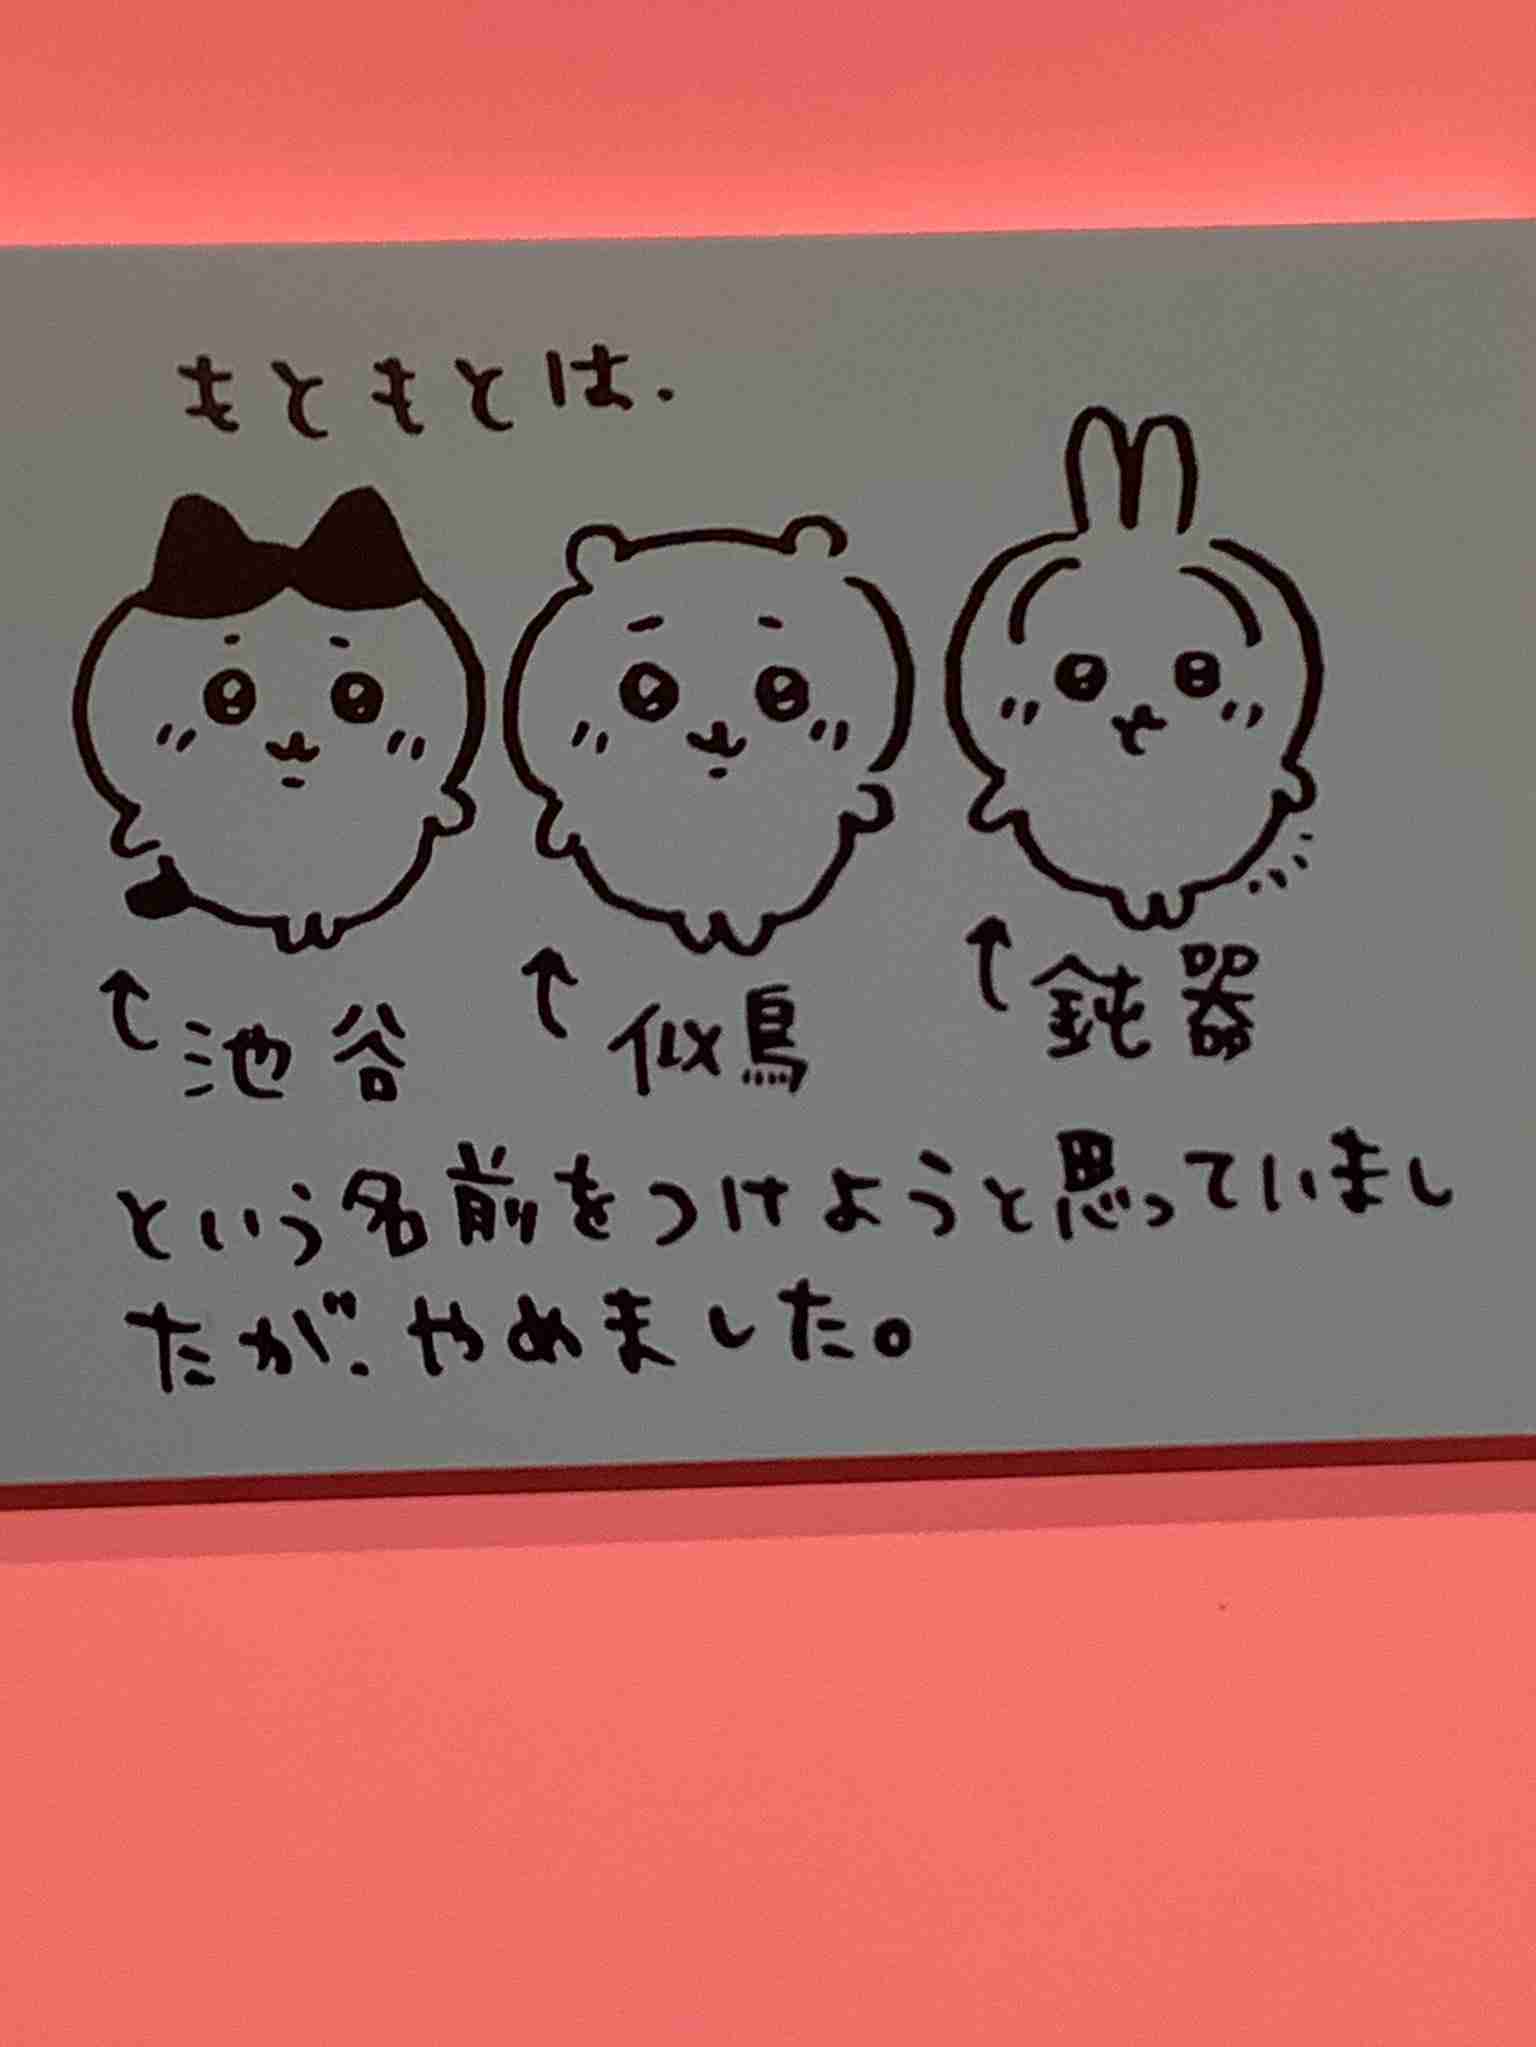 もともとは、
↑池谷 ↑似鳥 ↑鈍器
という名前をつけようと思っていまし
たが、やめました。